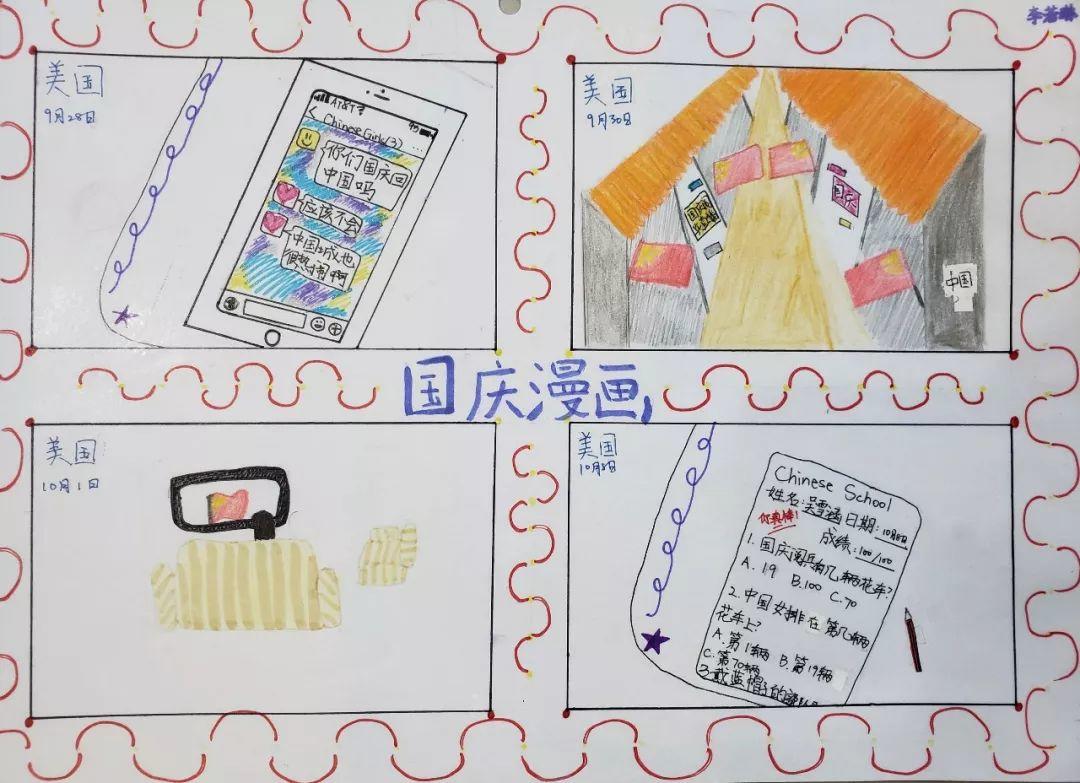 李若琳
美国
9月28日
AT&T
Chinese Girls(3)
你们国庆回
中国吗
应该不会
中国城也
很热闹啊
美国
9月30日
国庆
中国
国庆漫画
美国
10月1日
美国
10月8日
Chinese School
姓名:吴雪涵 日期:10月8日
你真棒!
成绩:100/100
1. 国庆阅兵有几辆花车?
A. 19 B.100 C.70
2. 中国女排在第几辆
花车上?
A. 第1辆 B. 第19辆
C. 第70辆
3. 戴蓝帽子的